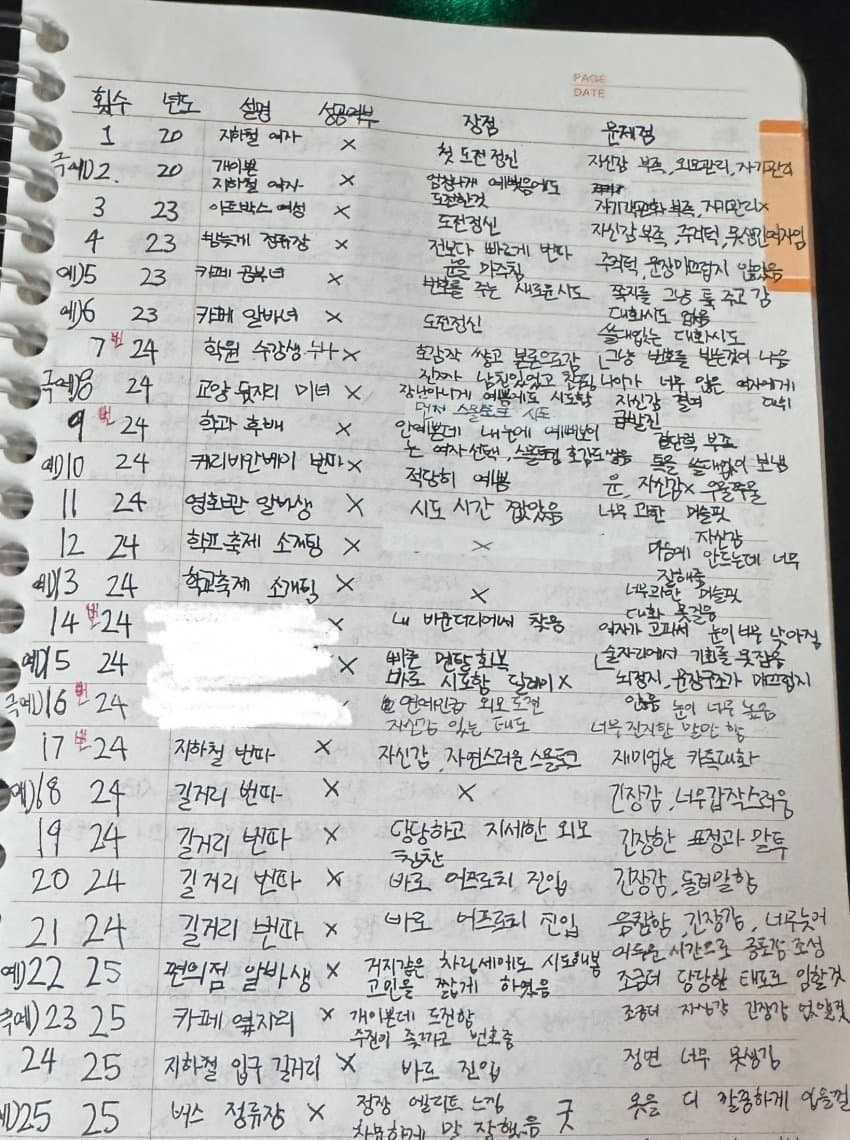 PAGE
DATE
횟수 년도 설명 성공여부 장점 문제점
1 20 지하철 여자 × 첫 도전정신 자신감 부족, 외모관리, 자기관리
극예)2. 20 개이쁜 지하철 여자 × 엄청나게 예뻤음에도 도전한것
3 23 아트박스 여성 × 도전정신 자기객관화 부족, 자기관리×
4 23 밤늦게 정류장 × 전보다 빠르게 번따 자신감 부족, 주걱턱, 못생긴여자임
예)5 23 카페 공부녀 × 눈을 마주침 주걱턱, 문장매끄럽지 않았음
번호를 주는 새로운시도 쪽지를 그냥 툭 주고 감
예)6 23 카페 알바녀 × 도전정신 대화시도 없음
쓸데없는 대화시도
7 번 24 학원 수강생 누나 × 호감작 쌓고 본론으로감 그냥 번호를 받는것이 나음
극예)8 24 교양 뒷자리 미녀 × 장난아니게 예쁨에도 시도함 자신감 결여
나이가 너무 많은 여자에게
9 번 24 학과 후배 × 먼저 스몰토크 시도 급발진
안예쁜데 내눈에 예뻐보이는 여자선택, 스몰토크 호감도쌓음 결단력 부족
톡을 쓸데없이 보냄
예)10 24 캐리비안베이 번따 × 적당히 예쁨 운, 자신감× 우물쭈물
11 24 영화관 알바생 × 시도 시간 짧았음 너무 과한 머슬핏
자신감
12 24 학교축제 소개팅 × × 마음에 안드는데 너무 잘해줌
예)13 24 학교축제 소개팅 × × 너무과한 머슬핏
대화 못걸음
14 번 24 × 내 바운더리에서 찾음 여자가 고파서 눈이 너무 낮아짐
술자리에서 기회를 못잡음
예)15 24 × 빠른 멘탈회복
바로 시도함 딜레이× 뇌정지, 문장구조가 매끄럽지 않음
극예)16 번 24 연예인급 외모 도전 눈이 너무 높음
자신감 있는 태도 너무 진지한 말만 함
17 번 24 지하철 번따 × 자신감, 자연스러운 스몰토크 재미없는 카톡대화
예)18 24 길거리 번따 × × 긴장감, 너무갑작스러움
19 24 길거리 번따 × 당당하고 자세한 외모 칭찬 긴장한 표정과 말투
20 24 길거리 번따 × 바로 어프로치 진입 긴장감, 돌려말함
21 24 길거리 번따 × 바로 어프로치 진입 음침함, 긴장감, 너무늦어
어두운 시간으로 공포감 조성
예)22 25 편의점 알바생 × 거지같은 차림새에도 시도해봄
고민을 짧게 하였음 조금더 당당한 태도로 임할것
극예)23 25 카페 옆자리 × 개이쁜데 도전함 조금더 자신감 긴장감 없앨것
24 25 지하철 입구 길거리 × 바로 진입 정면 너무 못생김
예)25 25 버스 정류장 × 정장 엘리트 느낌 굿 옷을 더 깔끔하게 입을걸
차분하게 말 잘했음